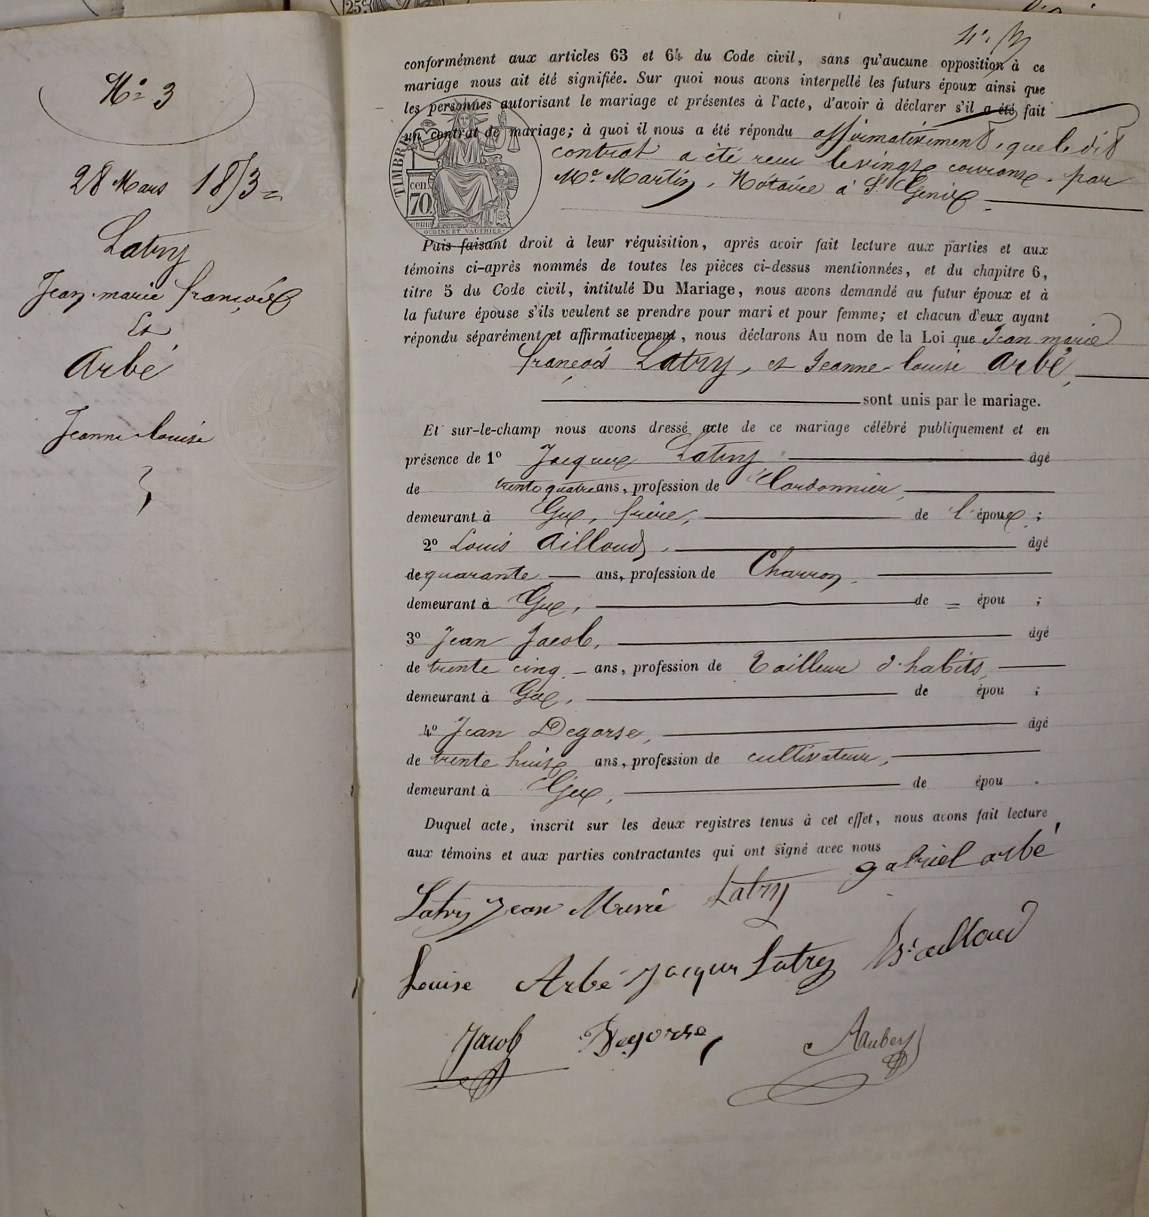 N° 3
28 Mars 1873
Latry
Jean-marie françois
Et
Arbé
Jeanne-louise
conformément aux articles 63 et 64 du Code civil, sans qu'aucune opposition à ce
mariage nous ait été signifiée. Sur quoi nous avons interpellé les futurs époux ainsi que
les personnes autorisant le mariage et présentes à l'acte, d'avoir à déclarer s'il a été fait
un contrat de mariage; à quoi il nous a été répondu affirmativement, que le dit
contrat a été reçu le vingt courant, par
Me Martin, Notaire à St Genix
TIMBRE
cen.
70
OUDINE ET VAUTHIER
Puis faisant droit à leur réquisition, après avoir fait lecture aux parties et aux
témoins ci-après nommés de toutes les pièces ci-dessus mentionnées, et du chapitre 6,
titre 5 du Code civil, intitulé Du Mariage, nous avons demandé au futur époux et à
la future épouse s'ils veulent se prendre pour mari et pour femme; et chacun d'eux ayant
répondu séparément et affirmativement, nous déclarons Au nom de la Loi que Jean marie
françois Latry, et Jeanne-louise Arbé,
sont unis par le mariage.
Et sur-le-champ nous avons dressé acte de ce mariage célébré publiquement et en
présence de 1° Jacques Latry âgé
de trente quatre ans, profession de Cordonnier,
demeurant à frère, de l'époux;
2° Louis Ailloud, âgé
de quarante ans, profession de Charron,
demeurant à de = épou ;
3° Jean Jacob, âgé
de trente cinq ans, profession de tailleur d'habits,
demeurant à de épou ;
4° Jean Degorse, âgé
de trente huit ans, profession de cultivateur,
demeurant à de épou .
Duquel acte, inscrit sur les deux registres tenus à cet effet, nous avons fait lecture
aux témoins et aux parties contractantes qui ont signé avec nous
Latry Jean Marie Latry gabriel arbé
Louise Arbé Jacques Latry ailloud
Jacob Degorse Aubery